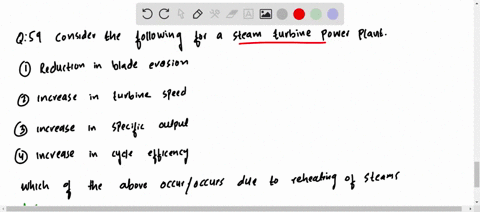 Q:59 Consider the following for a steam turbine power plant.
① Reduction in blade erosion
② increase in turbine speed
③ increase in specific output
④ increase in cycle efficency
which of the above occur/occurs due to reheating of steams